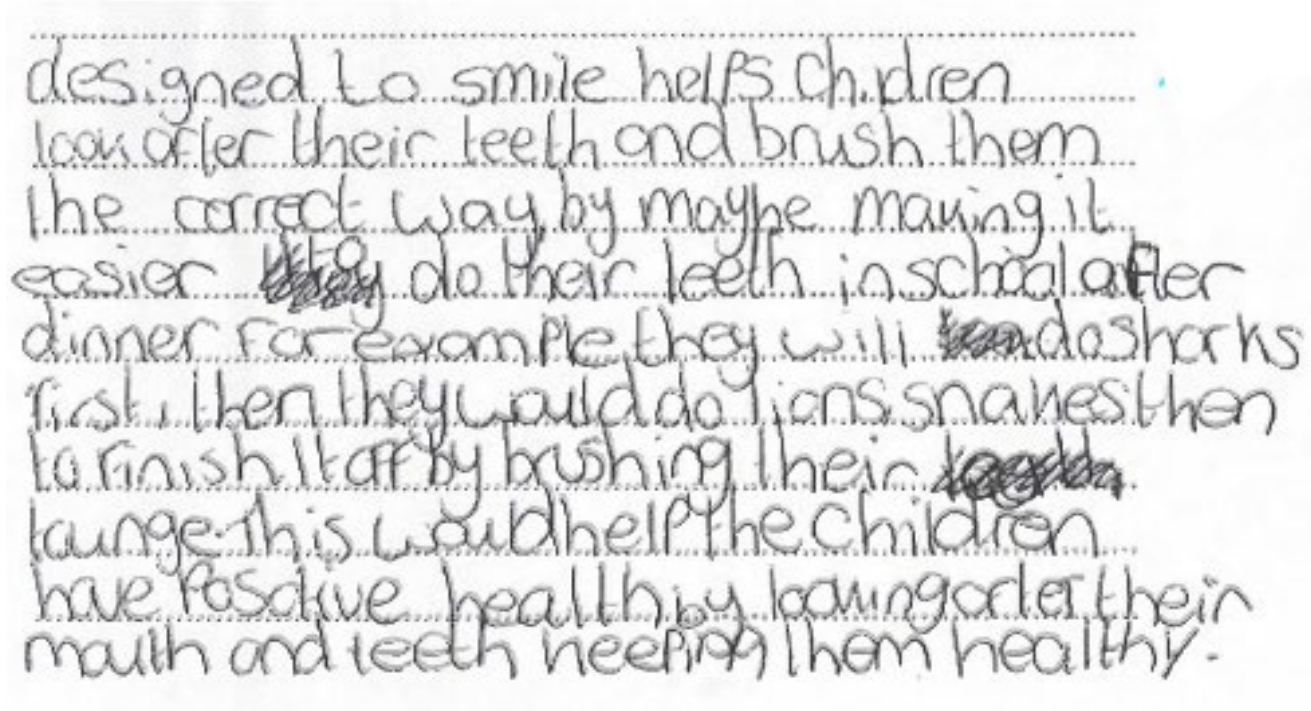 designed to smile helps Children
look after their teeth and brush them
the correct way by maybe making it
easier to do their teeth in school after
dinner For example they will do sharks
first, then they would do lions, snakes then
to finish it off by brushing their
tounge. This would help the children
have Posative health by looking after their
mouth and teeth keeping them healthy.